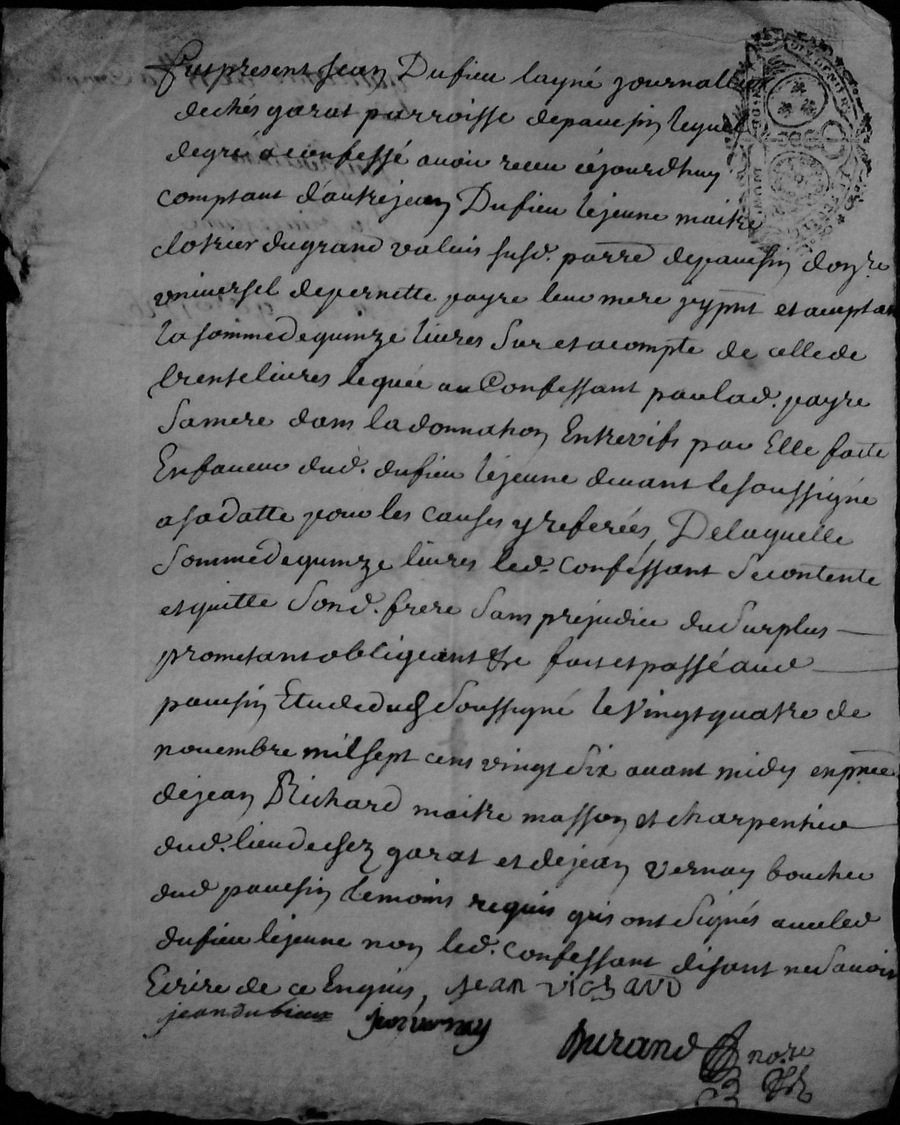 Fut present Jean Dufieu layné journallier
de chés garat parroisse de pavesin lequel
de gré a confessé avoir receu cejourdhuy
comptant d'autre jean Dufieu lejeune maitre
du grand valuis susd. parre de pavesin donre
universel de pernette payre leur mere yprnt et aceptant
la somme de quinze livres Sur et acompte de celle de
trente livres leguée au Confessant par lad. payre
Sa mere dans la donnation Entrevifs par Elle faitte
En faveur dud. dufieu lejeune devant le soussigné
a sa datte pour les causes y referées, De laquelle
Somme de quinze livres led. Confessant Se contente
et quitte Sond. frere Sans prejudice du Surplus
prometant obligeant &c fait et passé aud
pavesin Etude du Soussigné le vingt quatre de
novembre mil sept cens vingt Six avant midy en pnce
de jean Richard maitre masson et charpentier
dud. lieu de chez garat et de jean vernay boucher
dud pavesin temoins requis qui ont Signés avec led
dufieu lejeune non led. Confessant disant ne Savoir
Ecrire de ce Enquis, JEAN
jean dufieux vernay
Durand nore